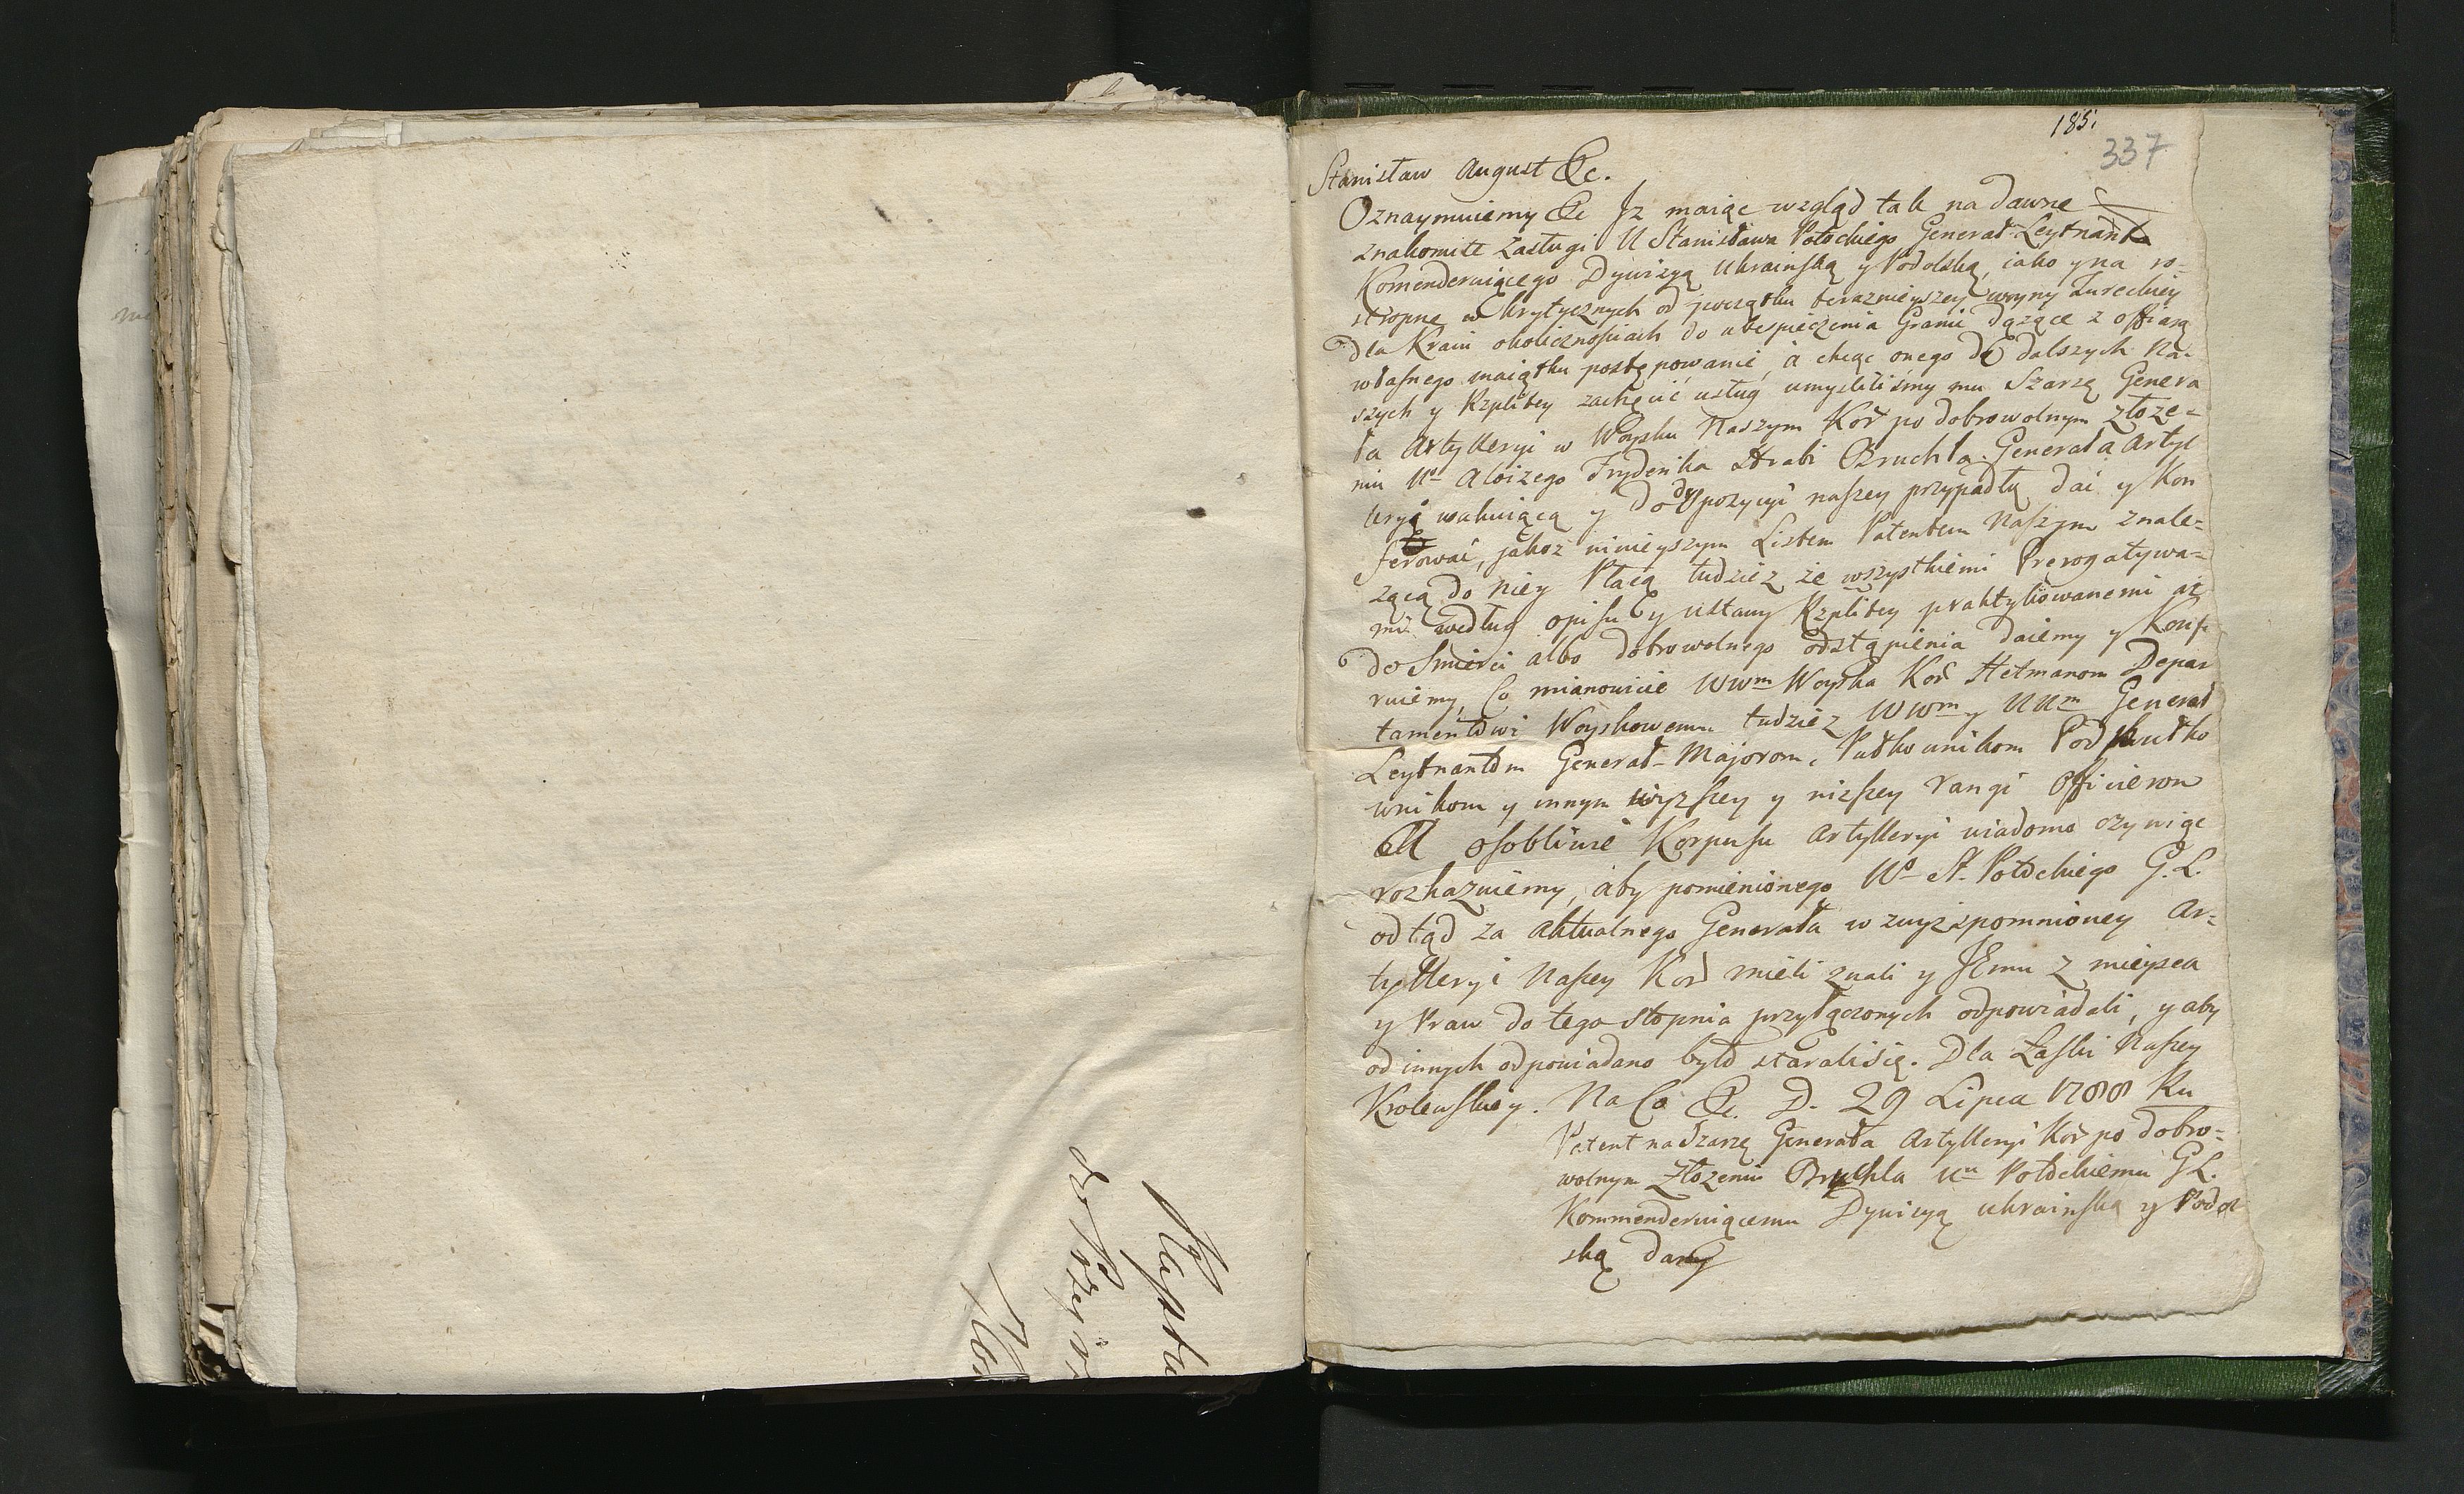 185.
337
Stanisław August &c.
Oznaymuiemy &c Jż maiąc wzgląd tak na dawne
znakomite zasługi U Stanisława Potockiego Generał-Leytnanta
Komenderuiącego Dywizyą Ukrainską y Podolską, iako y na ro-
stropne w krytycznych od początku teraznieyszey woyny Tureckiey
dla Kraiu okolicznosciach do ubespieczenia Granic dążące z offiarą
własnego maiątku postępowanie, a chcąc onego do dalszych Na-
szych y Rzpltey zachęcić usług umyśliliśmy mu Szarżę Genera
ła Artylleryi w Woysku Naszym Koř po dobrowolnym złoże-
niu Uo Aloizego Fryderika Hrabi Bruchla Generała Artyl
leryi wakuiącą y do dyspozycyi naszey przypadłą dać y Kon
ferować, jakoż ninieyszym Listem Patentem Naszym znale-
żącą do niey Płacą tudzież że wszystkiemi Prerogatywa-
mi według opisu y ustawy Rzpltey praktykowanemi aż
do Smierci albo dobrowolnego odstąpienia daiemy y Konfe
ruiemy, Co mianowicie WWm Woyska Koř Hetmanom Depar
tamentowi Woyskowemu tudzież WWm y UUm Generał
Leytnantom Generał-Majorom, Pułkownikom Podpułko
wnikom y innym wyższey y niższey rangi Officierom
osobliwie Korpusu Artylleryi wiadomo czyniąc
rozkazuiemy, aby pomienionego Wo St. Potockiego G. L.
odtąd za aktualnego Generała w zwyż spomnioney Ar-
tylleryi Naszey Koř mieli znali y JEmu z mieysca
y Praw do tego stopnia przyłączonych odpowiadali, y aby
od innych odpowiadano było starali się. Dla Łaski Naszey
Krolewskiey. Na Co &c. D. 29 Lipca 1788 Ru
Patent na Szarżę Generała Artylleryi Koř po dobro-
wolnym Złożeniu Bruchla Uu Potockiemu GL.
Kommenderuiącemu Dywizyą ukrainską y Podol
ską dany